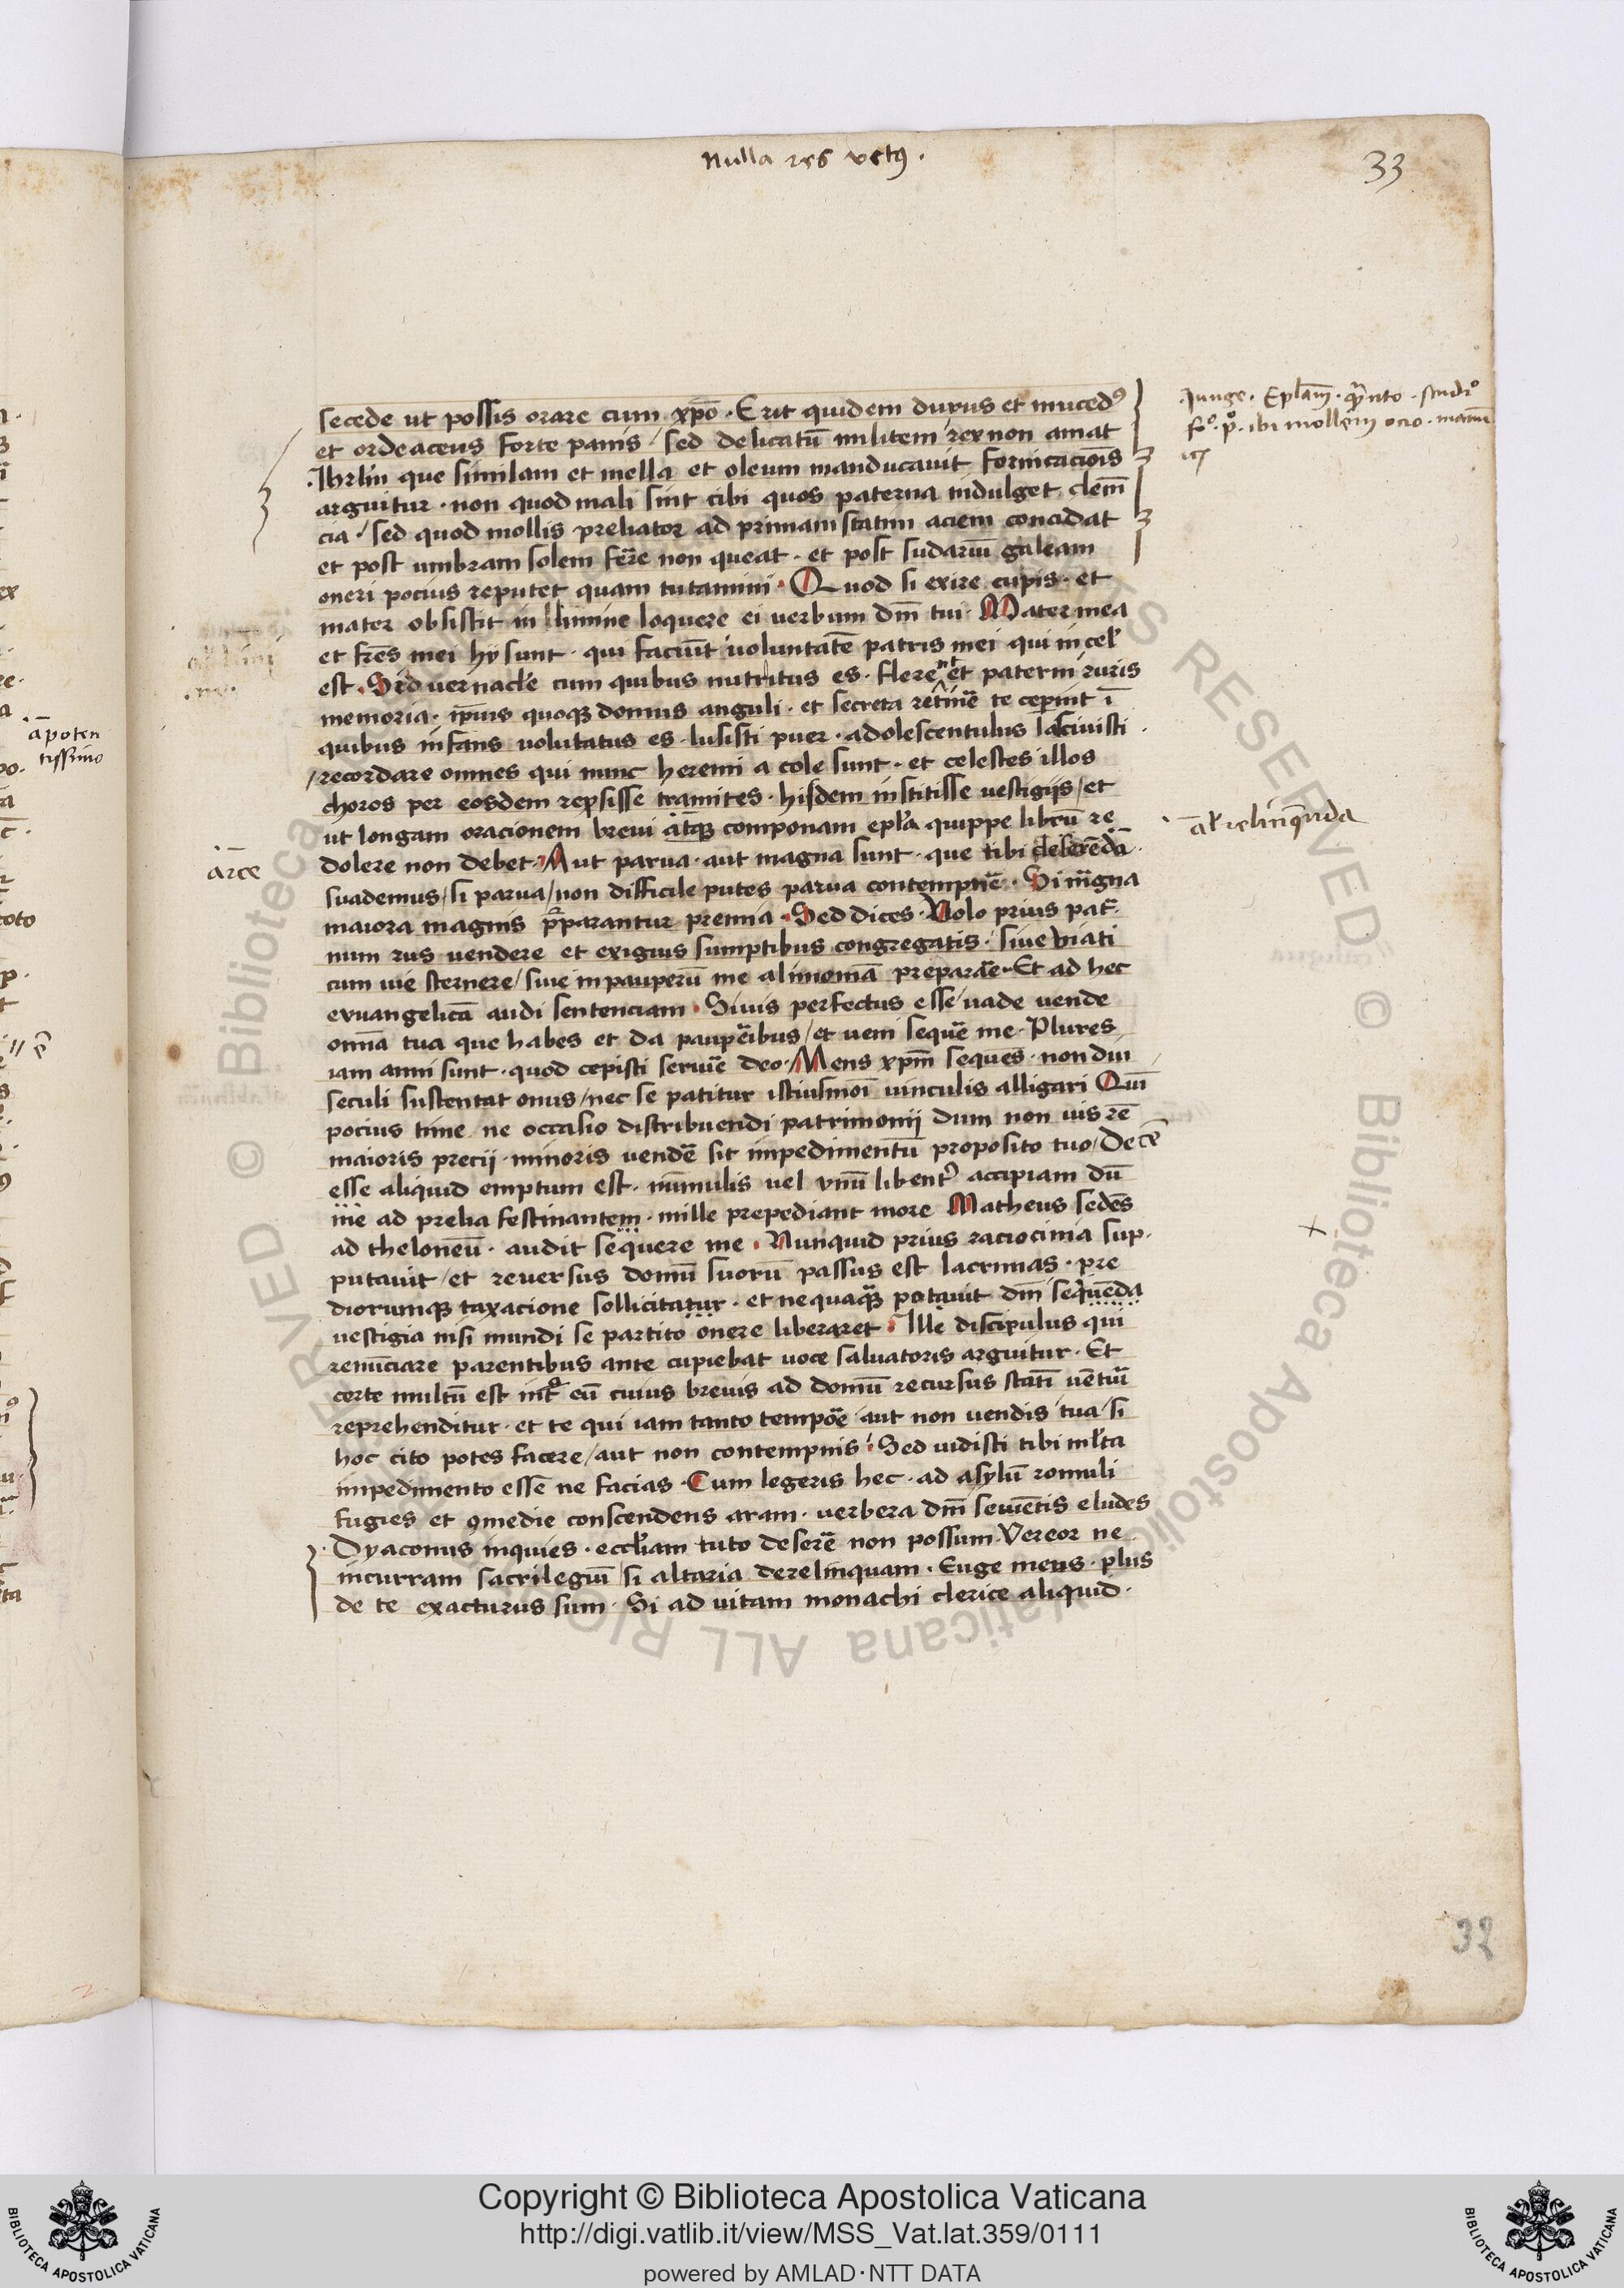 Nulla res vetꝰ.
33
secede ut possis orare cum xpō · Erit quidem durus et mucedꝰ
et ordeaceus forte panis / sed delicatū militem rex non amat
Jhrlm que similam et mella et oleum manducavit fornicacōis
arguitur · non quod mali sint cibi quos paterna indulget clem̄
cia / sed quod mollis preliator ad primam statim aciem concidat
et post umbram solem fēre non queat · et post sudariū galeam
oneri pocius reputet quam tutamini · Quod si exire cupis · et
mater obsistit in limine loquere ei verbum dm̄ tui · Mater mea
et frēs mei hy sunt · qui faciūt voluntatē patris mei qui in cel̛
est · Sed vernacl̛e cum quibus nutritus es · flere et paterni ruris
memoria · ip̄ius quoqꝫ domus anguli · et secreta retīnē te cep̄int ī
quibus infans volutatus es · lusisti puer · adolescentulus lascivisti
/ recordare omnes qui nunc heremi a cole sunt · et celestes illos
choros per eosdem repsisse tramites · hisdem institisse vestigijs / et
ut longam oracionem brevi at̄qꝫ componam epl̛a quippe librū re
dolere non debet · Aut parva · aut magna sunt · que tibi deserēda
suademus / si parva / non difficile putes parva contempnē · Si māgna
maiora magnis p̄parantur premia · Sed dices · Volo prius pat̄
num rus vendere et exiguis sumptibus congregatis · sive viati
cum vie sternere / sive in pauperū me alimoniā preparāe · Et ad hec
evvangelicā audi sentenciam · Si vis perfectus esse / vade vende
om̄a tua que habes et da paup̄ibus / et veni sequē me · Plures
iam anni sunt · quod cepisti servīe deo · Mens xpm̄ sequēs · non diu
seculi sustentat onus / nec se patitur istiusmoī vinculis alligari Quī
pocius time ne occasio distribuendi patrimonij dum non vis rē
maioris precij · minoris vendē sit impedimentū proposito tuo / Decē
esse aliquid emptum est · nūmulis vel vnū libentꝰ accipiam dū
me ad prelia festinantem · mille prepediant more Matheus sedēs
ad theloneū · audit sequere me · Nunquid prius raciocinia sup
putavit / et reversus domū suorū passus est lacrimas · pre
diorumqꝫ taxacione sollicitatur · et nequaquā putavit dm̄ sequēda
vestigia nisi mundi se partito onere liberaret · Ille discipulus qui
renūciare parentibus ante cupiebat voce salvatoris arguitur · Et
certe multū est int̄ eū cuius brevis ad domū recursus statī vētuꝰ
reprehenditur · et te qui iam tanto tempōe aut non vendis tua / si
hoc cito potes facere / aut non contempnis · Sed vidisti tibi ml̛ta
impedimento essē ne facias · Cum legeris hec · ad asylū romuli
fugies et ꝯmedie conscendens aram · verbera dm̄ sevientis eludes
Dyaconus inquies · eccl̛iam tuto deserē non possum · Vereor ne
incurram sacrilegiū / si altaria derelinquam · Euge meus · plus
de te exacturus sum · Si ad vitam monachi clerice aliquid ·
Junge · Epl̛am · qrānto · studiꝰ
fo · ibi mollem ocio · manū
ar̄ce
al̛ relinquēda
a potentissimo
32
Copyright © Biblioteca Apostolica Vaticana
http://digi.vatlib.it/view/MSS_Vat.lat.359/0111
powered by AMLAD·NTT DATA
BIBLIOTECA APOSTOLICA VATICANA
BIBLIOTECA APOSTOLICA VATICANA